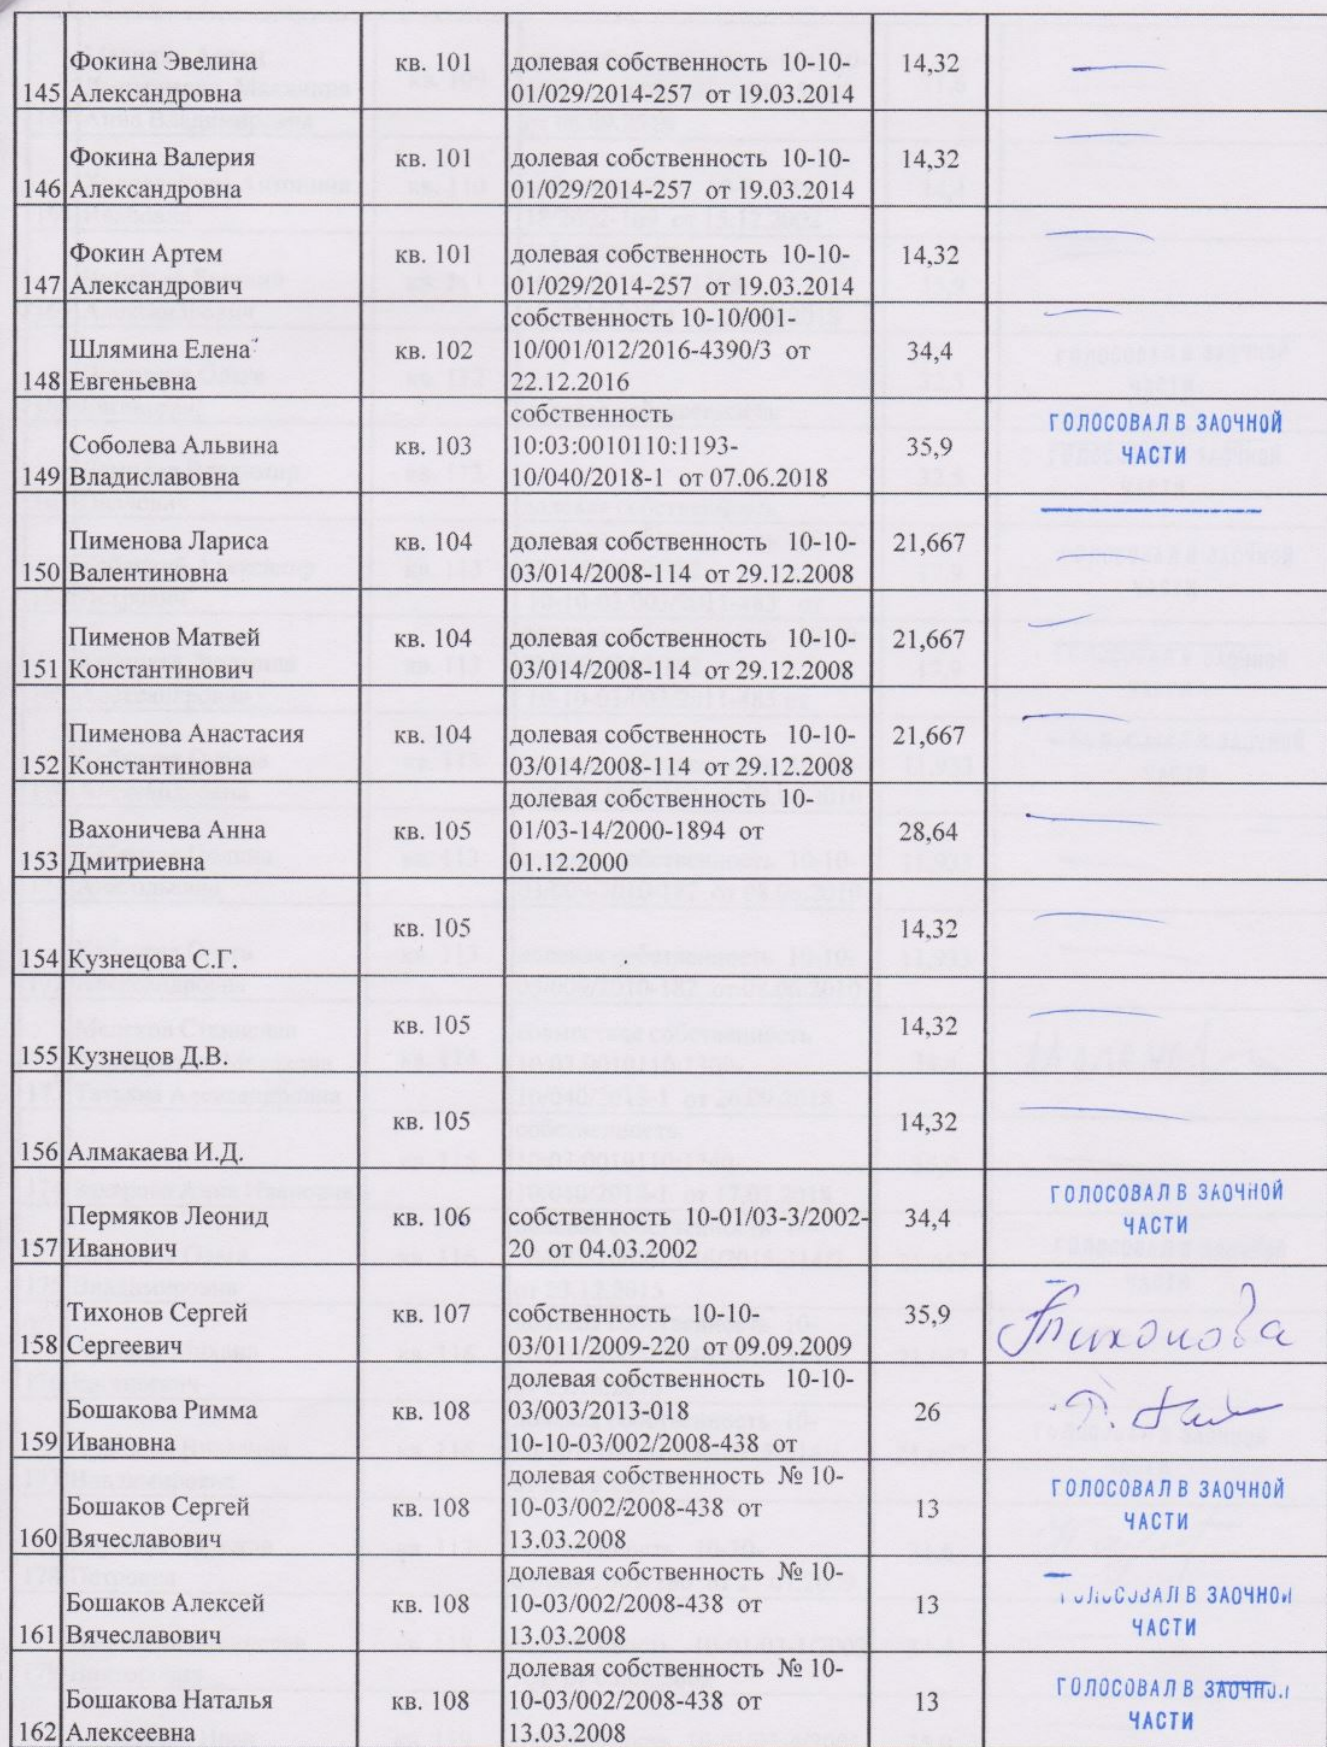 145 Фокина Эвелина Александровна кв. 101 долевая собственность 10-10-01/029/2014-257 от 19.03.2014 14,32
146 Фокина Валерия Александровна кв. 101 долевая собственность 10-10-01/029/2014-257 от 19.03.2014 14,32
147 Фокин Артем Александрович кв. 101 долевая собственность 10-10-01/029/2014-257 от 19.03.2014 14,32
148 Шлямина Елена Евгеньевна кв. 102 собственность 10-10/001-10/001/012/2016-4390/3 от 22.12.2016 34,4
149 Соболева Альвина Владиславовна кв. 103 собственность 10:03:0010110:1193-10/040/2018-1 от 07.06.2018 35,9 ГОЛОСОВАЛ В ЗАОЧНОЙ ЧАСТИ
150 Пименова Лариса Валентиновна кв. 104 долевая собственность 10-10-03/014/2008-114 от 29.12.2008 21,667
151 Пименов Матвей Константинович кв. 104 долевая собственность 10-10-03/014/2008-114 от 29.12.2008 21,667
152 Пименова Анастасия Константиновна кв. 104 долевая собственность 10-10-03/014/2008-114 от 29.12.2008 21,667
153 Вахоничева Анна Дмитриевна кв. 105 долевая собственность 10-01/03-14/2000-1894 от 01.12.2000 28,64
154 Кузнецова С.Г. кв. 105 14,32
155 Кузнецов Д.В. кв. 105 14,32
156 Алмакаева И.Д. кв. 105 14,32
157 Пермяков Леонид Иванович кв. 106 собственность 10-01/03-3/2002-20 от 04.03.2002 34,4 ГОЛОСОВАЛ В ЗАОЧНОЙ ЧАСТИ
158 Тихонов Сергей Сергеевич кв. 107 собственность 10-10-03/011/2009-220 от 09.09.2009 35,9 Тихонова
159 Бошакова Римма Ивановна кв. 108 долевая собственность 10-10-03/003/2013-018 10-10-03/002/2008-438 от 26
160 Бошаков Сергей Вячеславович кв. 108 долевая собственность № 10-10-03/002/2008-438 от 13.03.2008 13 ГОЛОСОВАЛ В ЗАОЧНОЙ ЧАСТИ
161 Бошаков Алексей Вячеславович кв. 108 долевая собственность № 10-10-03/002/2008-438 от 13.03.2008 13 ГОЛОСОВАЛ В ЗАОЧНОЙ ЧАСТИ
162 Бошакова Наталья Алексеевна кв. 108 долевая собственность № 10-10-03/002/2008-438 от 13.03.2008 13 ГОЛОСОВАЛ В ЗАОЧНОЙ ЧАСТИ